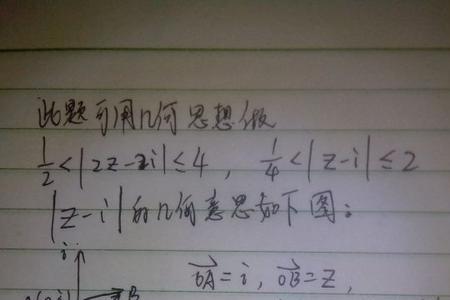 此题可用几何思想做
1/2<|2z-2i|≤4, 1/4<|z-i|≤2
|z-i|的几何意思如下图:
i
OA=i, OB=z,
B